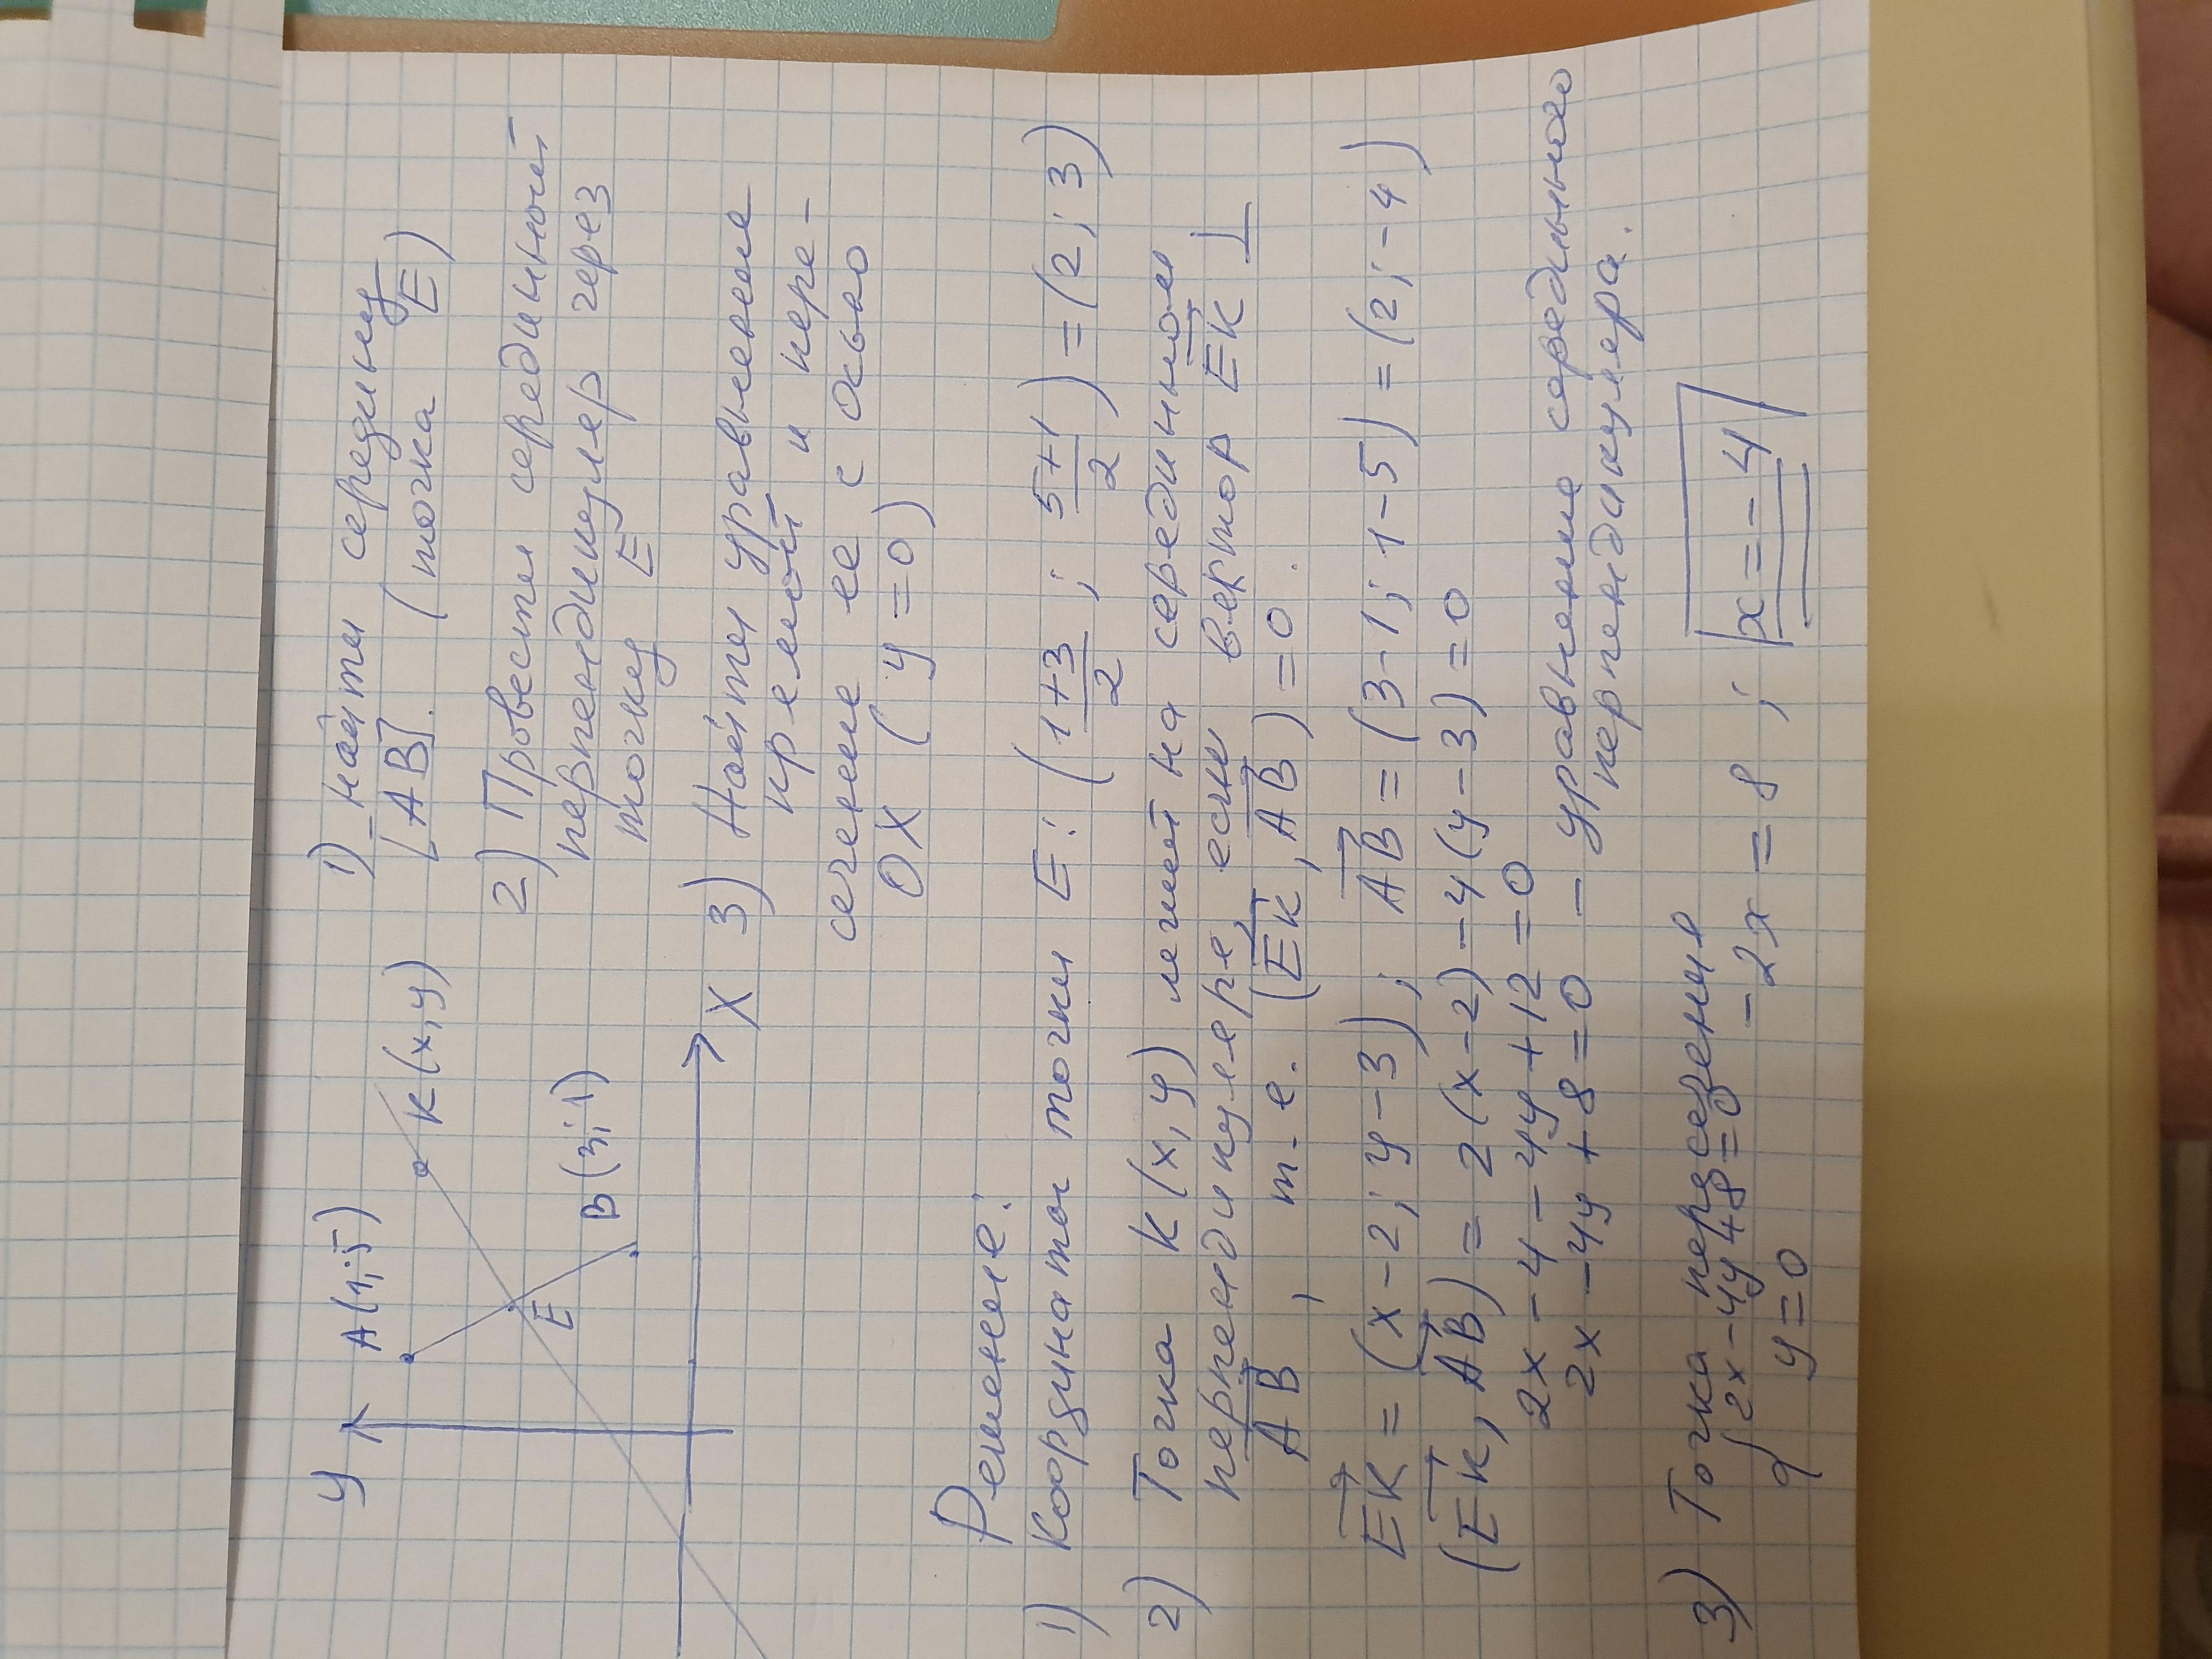 y
A(1;5)
K(x,y)
E
B(3;1)
X
1) найти середину
[AB]. (точка E)
2) Провести срединный
перпендикуляр через
точку E
3) Найти уравнение
прямой и пере-
сечение ее с осью
OX (y=0)
Решение:
1) Координаты точки E: (1+3/2; 5+1/2) = (2; 3)
2) Точка K(x,y) лежит на срединном
перпендикуляре, если вектор EK ⊥
AB, т.е. (EK, AB) = 0.
EK = (x-2; y-3); AB = (3-1; 1-5) = (2; -4)
(EK, AB) = 2(x-2)-4(y-3)=0
2x-4-4y+12=0
2x-4y+8=0 – уравнение срединного
перпендикуляра.
3) Точка пересечения
{2x-4y+8=0 -2x=8; x=-4
y=0